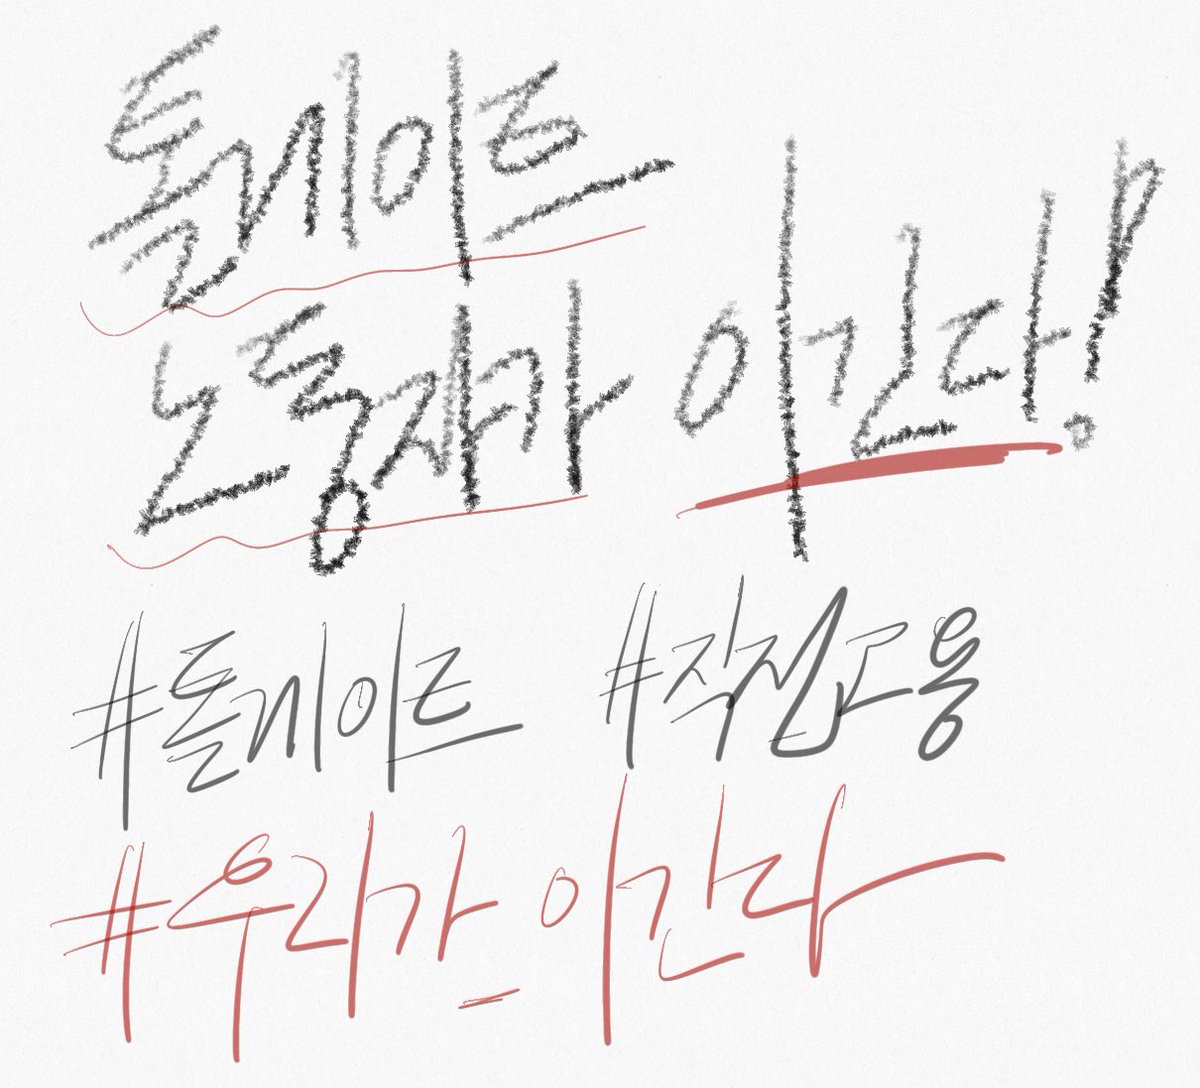 톨게이트
노동자가 이긴다!
#톨게이트 #직접고용
#우리가_이긴다